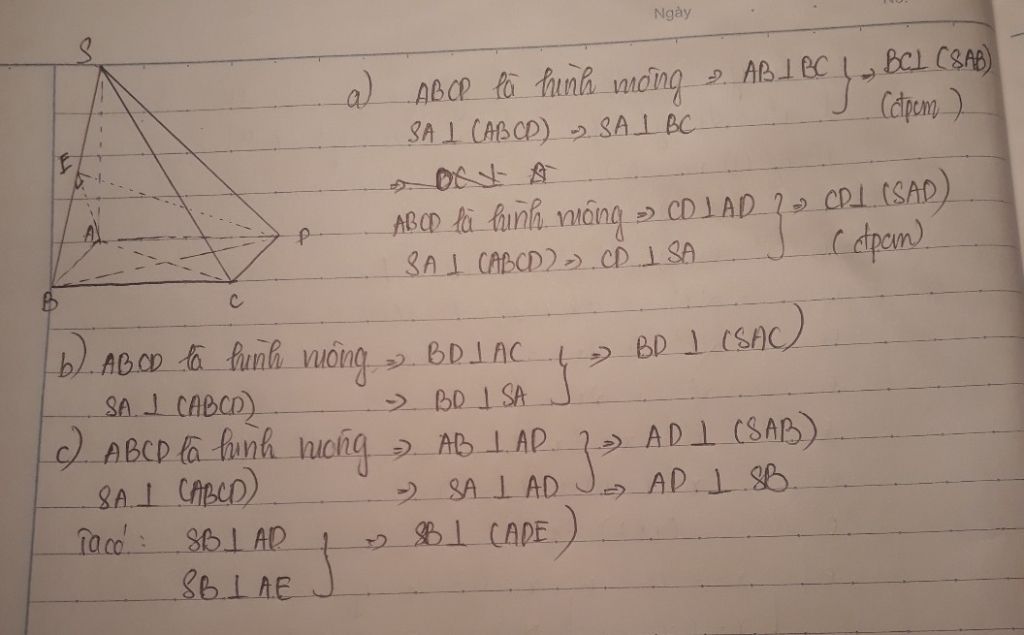 Ngày
S
E
A
D
B
C
a) ABCD là hình vuông ⇒ AB⊥BC } ⇒ BC⊥(SAB)
SA⊥(ABCD) ⇒ SA⊥BC (đpcm)
ABCD là hình vuông ⇒ CD⊥AD } ⇒ CD⊥(SAD)
SA⊥(ABCD) ⇒ CD⊥SA (đpcm)
b) ABCD là hình vuông ⇒ BD⊥AC } ⇒ BD⊥(SAC)
SA⊥(ABCD) ⇒ BD⊥SA
c) ABCD là hình vuông ⇒ AB⊥AD } ⇒ AD⊥(SAB)
SA⊥(ABCD) ⇒ SA⊥AD ⇒ AD⊥SB
Ta có: SB⊥AD } ⇒ SB⊥(ADE)
SB⊥AE